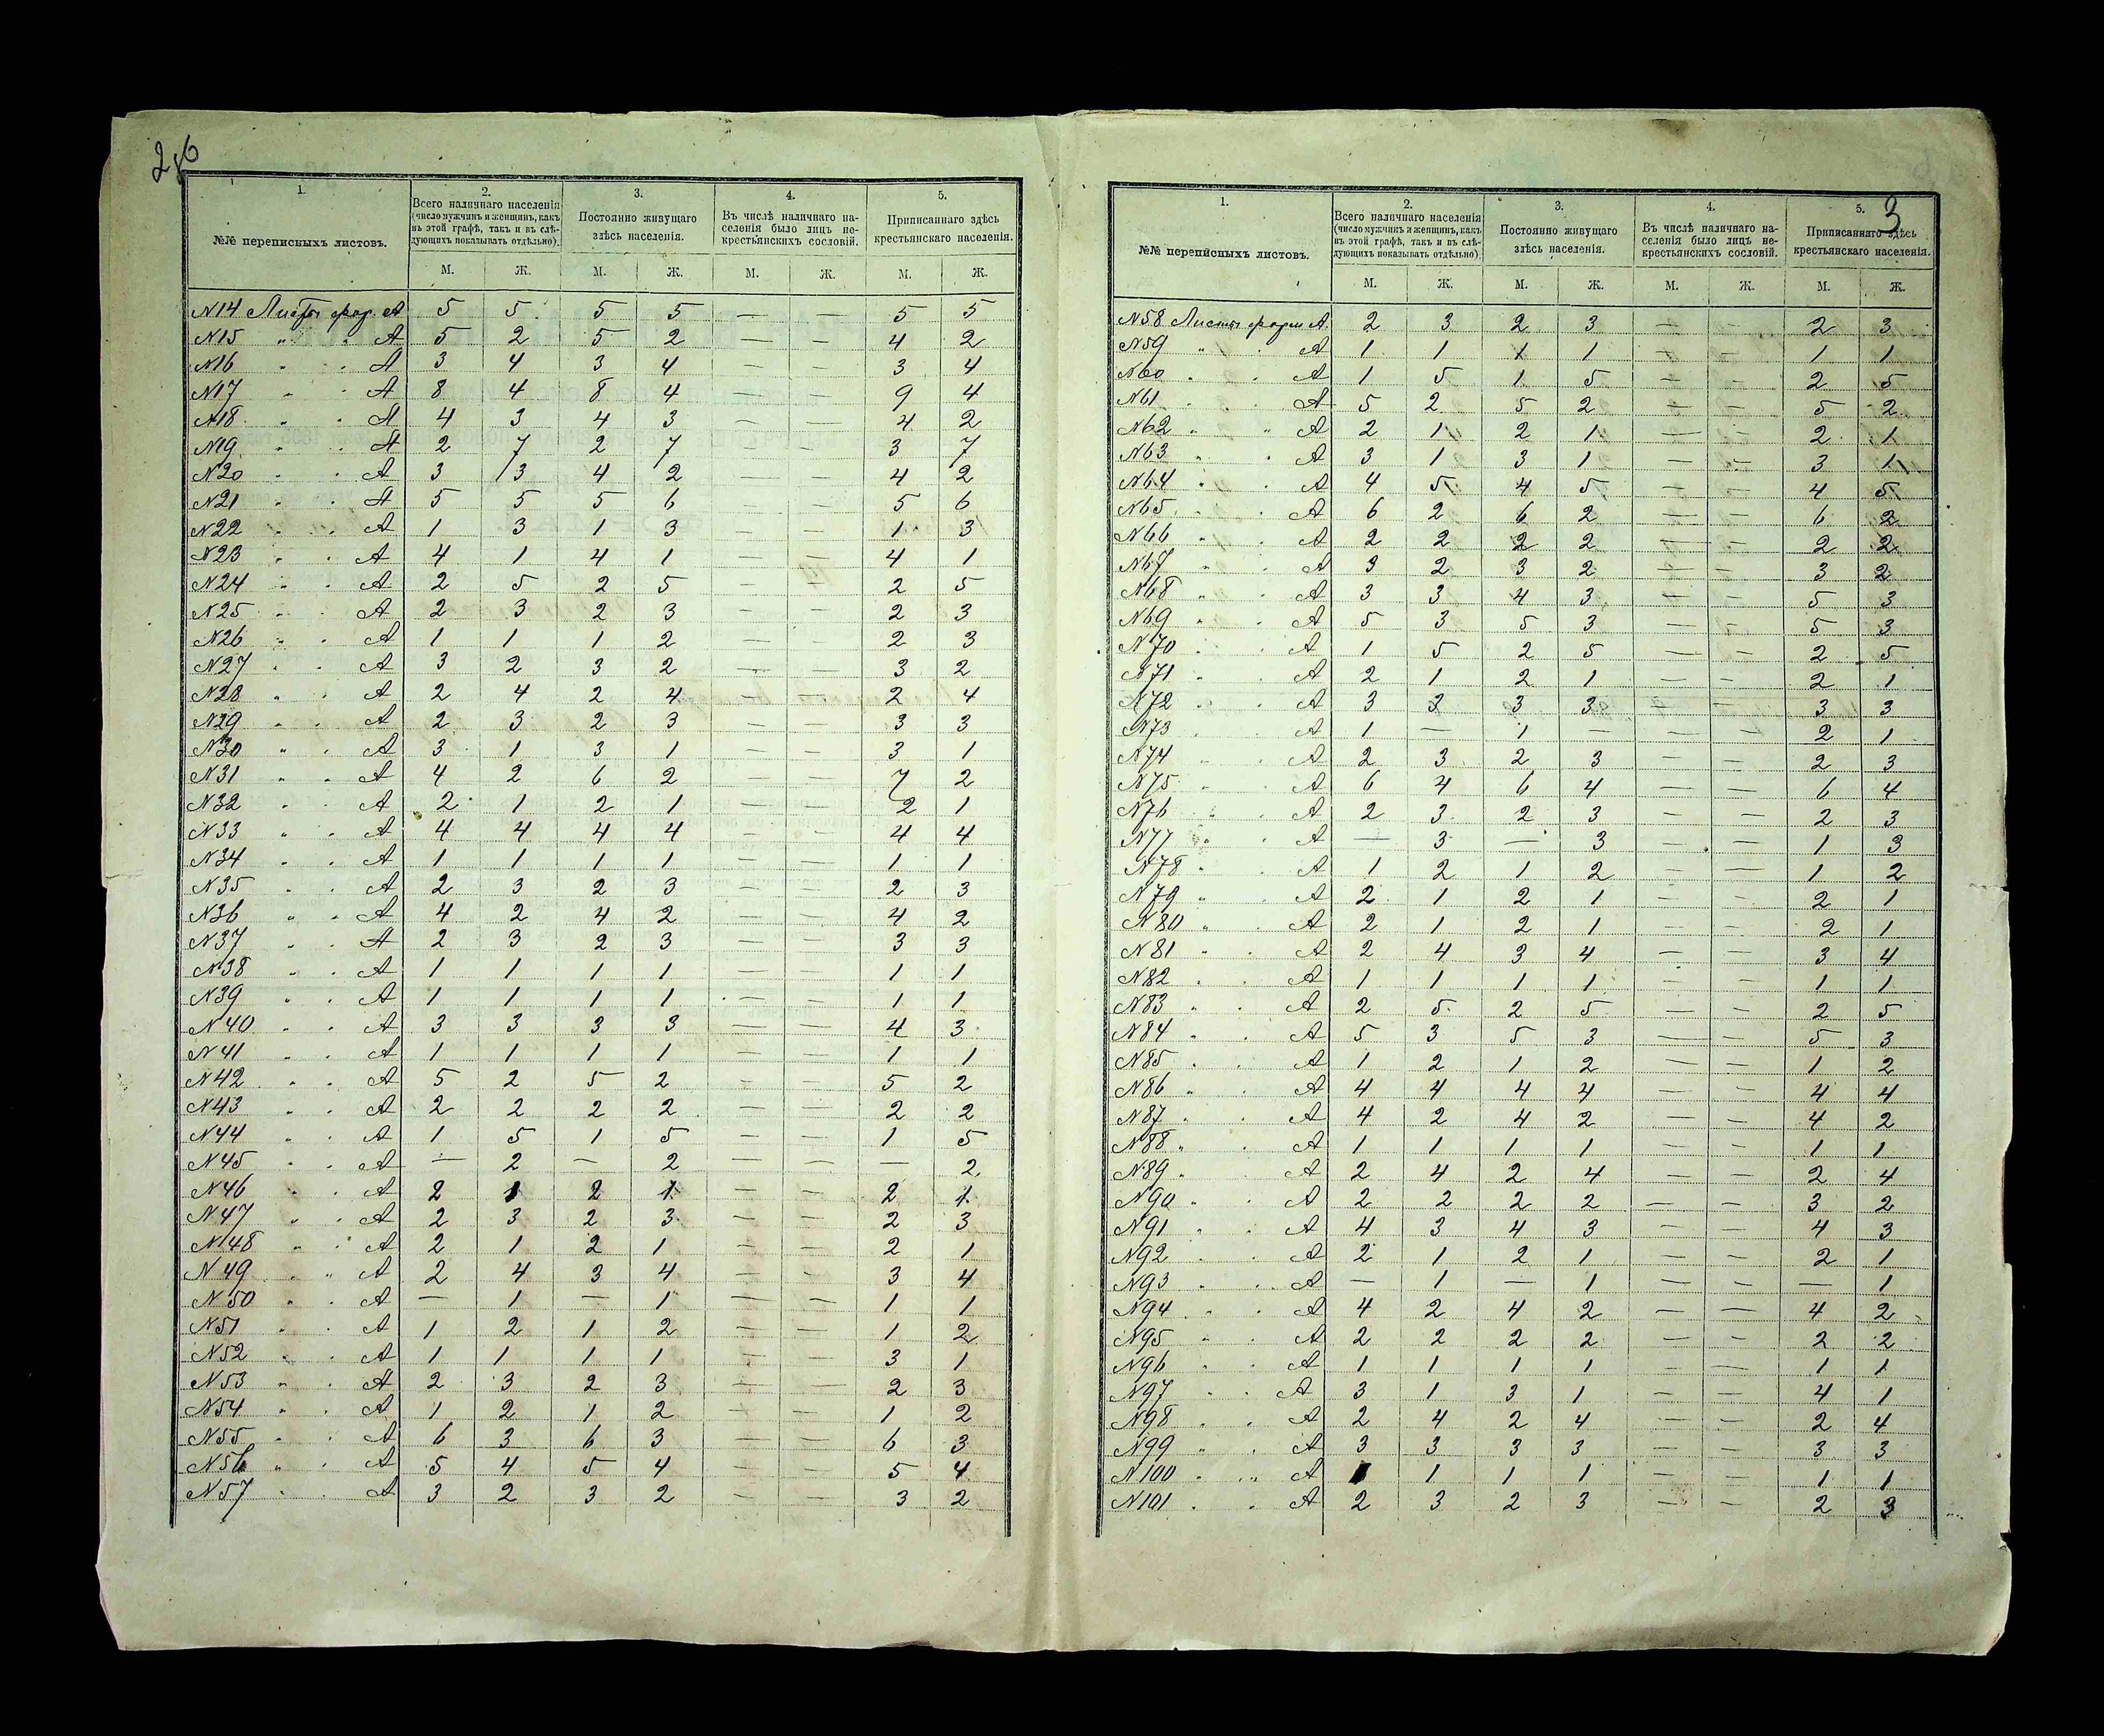 2об
1.
2.
3.
4.
5.
№№ переписныхъ листовъ.
Всего наличнаго населенія
(число мужчинъ и женщинъ, какъ
въ этой графѣ, такъ и въ слѣ-
дующихъ показывать отдѣльно).
Постоянно живущаго
здѣсь населенія.
Въ числѣ наличнаго на-
селенія было лицъ не-
крестьянскихъ сословій.
Приписаннаго здѣсь
крестьянскаго населенія.
М. Ж. М. Ж. М. Ж. М. Ж.
N14 Листы фор. А 5 5 5 5 — — 5 5
N15 " " А 5 2 5 2 — — 4 2
N16 " " А 3 4 3 4 — — 3 4
N17 " " А 8 4 8 4 — — 9 4
N18 " " А 4 3 4 3 — — 4 2
N19 " " А 2 7 2 7 — — 3 7
N20 " " А 3 3 4 2 — — 4 2
N21 " " А 5 5 5 6 — — 5 6
N22 " " А 1 3 1 3 — — 1 3
N23 " " А 4 1 4 1 — — 4 1
N24 " " А 2 5 2 5 — — 2 5
N25 " " А 2 3 2 3 — — 2 3
N26 " " А 1 1 1 2 — — 2 3
N27 " " А 3 2 3 2 — — 3 2
N28 " " А 2 4 2 4 — — 2 4
N29 " " А 2 3 2 3 — — 3 3
N30 " " А 3 1 3 1 — — 3 1
N31 " " А 4 2 6 2 — — 7 2
N32 " " А 2 1 2 1 — — 2 1
N33 " " А 4 4 4 4 — — 4 4
N34 " " А 1 1 1 1 — — 1 1
N35 " " А 2 3 2 3 — — 2 3
N36 " " А 4 2 4 2 — — 4 2
N37 " " А 2 3 2 3 — — 3 3
N38 " " А 1 1 1 1 — — 1 1
N39 " " А 1 1 1 1 — — 1 1
N40 " " А 3 3 3 3 — — 4 3
N41 " " А 1 1 1 1 — — 1 1
N42 " " А 5 2 5 2 — — 5 2
N43 " " А 2 2 2 2 — — 2 2
N44 " " А 1 5 1 5 — — 1 5
N45 " " А — 2 — 2 — — — 2
N46 " " А 2 1 2 1 — — 2 1
N47 " " А 2 3 2 3 — — 2 3
N48 " " А 2 1 2 1 — — 2 1
N49 " " А 2 4 3 4 — — 3 4
N50 " " А — 1 — 1 — — 1 1
N51 " " А 1 2 1 2 — — 1 2
N52 " " А 1 1 1 1 — — 3 1
N53 " " А 2 3 2 3 — — 2 3
N54 " " А 1 2 1 2 — — 1 2
N55 " " А 6 3 6 3 — — 6 3
N56 " " А 5 4 5 4 — — 5 4
N57 " " А 3 2 3 2 — — 3 2
3
1.
2.
3.
4.
5.
№№ переписныхъ листовъ.
Всего наличнаго населенія
(число мужчинъ и женщинъ, какъ
въ этой графѣ, такъ и въ слѣ-
дующихъ показывать отдѣльно).
Постоянно живущаго
здѣсь населенія.
Въ числѣ наличнаго на-
селенія было лицъ не-
крестьянскихъ сословій.
Приписаннаго здѣсь
крестьянскаго населенія.
М. Ж. М. Ж. М. Ж. М. Ж.
N58 Листы форм А. 2 3 2 3 — — 2 3
N59 " " А 1 1 1 1 — — 1 1
N60 " " А 1 5 1 5 — — 2 5
N61 " " А 5 2 5 2 — — 5 2
N62 " " А 2 1 2 1 — — 2 1
N63 " " А 3 1 3 1 — — 3 1
N64 " " А 4 5 4 5 — — 4 5
N65 " " А 6 2 6 2 — — 6 2
N66 " " А 2 2 2 2 — — 2 2
N67 " " А 3 2 3 2 — — 3 2
N68 " " А 3 3 4 3 — — 5 3
N69 " " А 5 3 5 3 — — 5 3
N70 " " А 1 5 2 5 — — 2 5
N71 " " А 2 1 2 1 — — 2 1
N72 " " А 3 3 3 3 — — 3 3
N73 " " А 1 — 1 — — — 2 1
N74 " " А 2 3 2 3 — — 2 3
N75 " " А 6 4 6 4 — — 6 4
N76 " " А 2 3 2 3 — — 2 3
N77 " " А — 3 — 3 — — 1 3
N78 " " А 1 2 1 2 — — 1 2
N79 " " А 2 1 2 1 — — 2 1
N80 " " А 2 1 2 1 — — 2 1
N81 " " А 2 4 3 4 — — 3 4
N82 " " А 1 1 1 1 — — 1 1
N83 " " А 2 5 2 5 — — 2 5
N84 " " А 5 3 5 3 — — 5 3
N85 " " А 1 2 1 2 — — 1 2
N86 " " А 4 4 4 4 — — 4 4
N87 " " А 4 2 4 2 — — 4 2
N88 " " А 1 1 1 1 — — 1 1
N89 " " А 2 4 2 4 — — 2 4
N90 " " А 2 2 2 2 — — 3 2
N91 " " А 4 3 4 3 — — 4 3
N92 " " А 2 1 2 1 — — 2 1
N93 " " А — 1 — 1 — — — 1
N94 " " А 4 2 4 2 — — 4 2
N95 " " А 2 2 2 2 — — 2 2
N96 " " А 1 1 1 1 — — 1 1
N97 " " А 3 1 3 1 — — 4 1
N98 " " А 2 4 2 4 — — 2 4
N99 " " А 3 3 3 3 — — 3 3
N100 " " А 1 1 1 1 — — 1 1
N101 " " А 2 3 2 3 — — 2 3